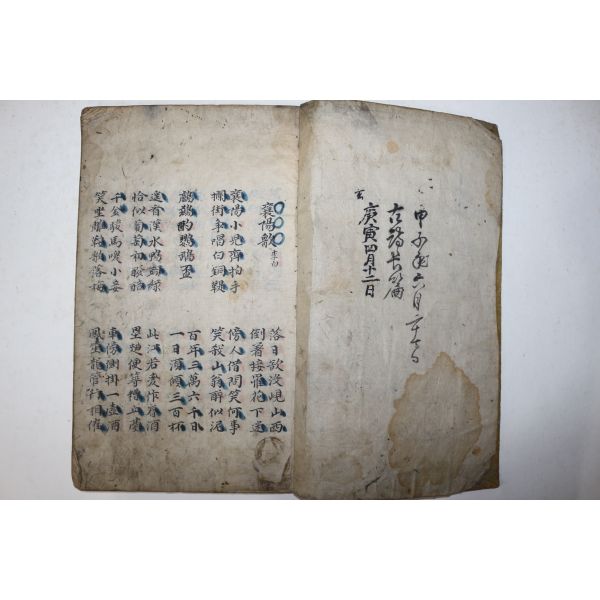 甲子年六月二十七日
古詩長篇
庚寅四月十二日
襄陽歌 李白
落日欲沒峴山西
倒着接䍦花下迷
襄陽小兒齊拍手
攔街爭唱白銅鞮
傍人借問笑何事
笑殺山翁醉似泥
鸕鶿酌鸚鵡盃
百年三萬六千日
一日須傾三百杯
遙看漢水鴨頭綠
恰似葡萄初醱醅
此江若變作春酒
壘麴便築糟丘臺
千金駿馬喚小妾
笑坐雕鞍歌落梅
車傍側掛一壺酒
鳳笙龍管行相催